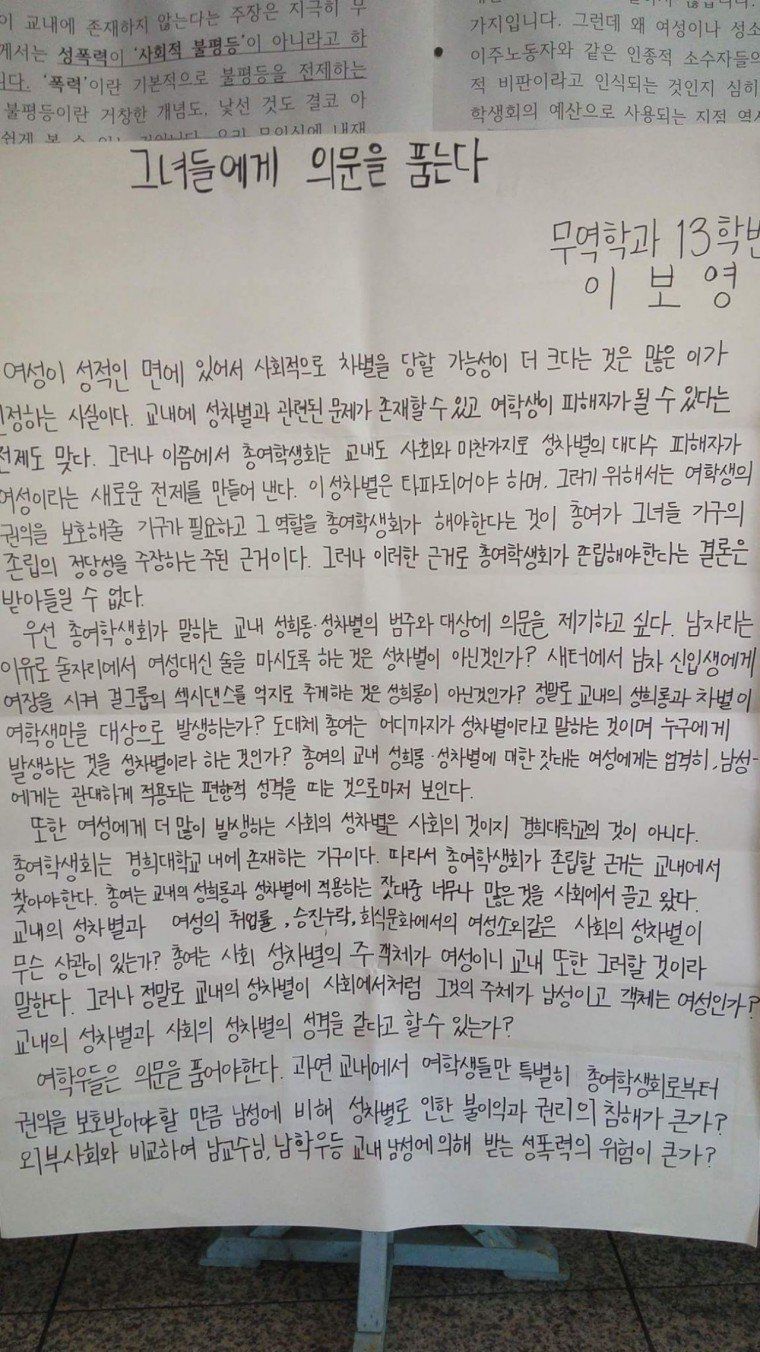 이 교내에 존재하지 않는다는 주장은 지극히 부
께서는 성폭력이 '사회적 불평등'이 아니라고 하
니다. '폭력'이란 기본적으로 불평등을 전제하는
불평등이란 거창한 개념도, 낯선 것도 결코 아
가지입니다. 그런데 왜 여성이나 성소
이주노동자와 같은 인종적 소수자들의
적 비판이라고 인식되는 것인지 심히
학생회의 예산으로 사용되는 지점 역시
그녀들에게 의문을 품는다
무역학과 13학번
이 보 영
여성이 성적인 면에 있어서 사회적으로 차별을 당할 가능성이 더 크다는 것은 많은 이가
인정하는 사실이다. 교내에 성차별과 관련된 문제가 존재할 수 있고 여학생이 피해자가 될 수 있다는
전제도 맞다. 그러나 이쯤에서 총여학생회는 교내도 사회와 마찬가지로 성차별의 대다수 피해자가
여성이라는 새로운 전제를 만들어 낸다. 이 성차별은 타파되어야 하며, 그러기 위해서는 여학생의
권의을 보호해줄 기구가 필요하고 그 역할을 총여학생회가 해야한다는 것이 총여가 그녀들 기구의
존립의 정당성을 주장하는 주된 근거이다. 그러나 이러한 근거로 총여학생회가 존립해야한다는 결론은
받아들일 수 없다.
우선 총여학생회가 말하는 교내 성희롱·성차별의 범주와 대상에 의문을 제기하고 싶다. 남자라는
이유로 술자리에서 여성대신 술을 마시도록 하는 것은 성차별이 아닌것인가? 새터에서 남자 신입생에게
여장을 시켜 걸그룹의 섹시댄스를 억지로 추게하는 것은 성희롱이 아닌것인가? 정말로 교내의 성희롱과 차별이
여학생만을 대상으로 발생하는가? 도대체 총여는 어디까지가 성차별이라고 말하는 것이며 누구에게
발생하는 것을 성차별이라 하는 것인가? 총여의 교내 성희롱·성차별에 대한 잣대는 여성에게는 엄격히, 남성-
에게는 관대하게 적용되는 편향적 성격을 띠는 것으로마저 보인다.
또한 여성에게 더 많이 발생하는 사회의 성차별은 사회의 것이지 경희대학교의 것이 아니다.
총여학생회는 경희대학교 내에 존재하는 기구이다. 따라서 총여학생회가 존립할 근거는 교내에서
찾아야한다. 총여는 교내의 성희롱과 성차별에 적용하는 잣대중 너무나 많은것을 사회에서 끌고 왔다.
교내의 성차별과 여성의 취업률, 승진누락, 회식문화에서의 여성소외같은 사회의 성차별이
무슨 상관이 있는가? 총여는 사회 성차별의 주 객체가 여성이니 교내 또한 그러할 것이라
말한다. 그러나 정말로 교내의 성차별이 사회에서처럼 그것의 주체가 남성이고 객체는 여성인가?
교내의 성차별과 사회의 성차별의 성격을 같다고 할 수 있는가?
여학우들은 의문을 품어야한다. 과연 교내에서 여학생들만 특별히 총여학생회로부터
권의을 보호받아야할 만큼 남성에 비해 성차별로 인한 불이익과 권리의 침해가 큰가?
외부사회와 비교하여 남교수님, 남학우등 교내 남성에 의해 받는 성폭력의 위험이 큰가?